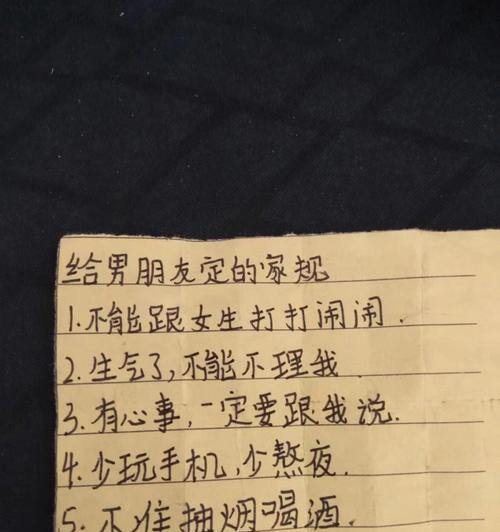 给男朋友定的家规
1.不能跟女生打打闹闹.
2.生气了,不能不理我
3.有心事,一定要跟我说.
4.少玩手机,少熬夜.
5.不准抽烟喝酒.